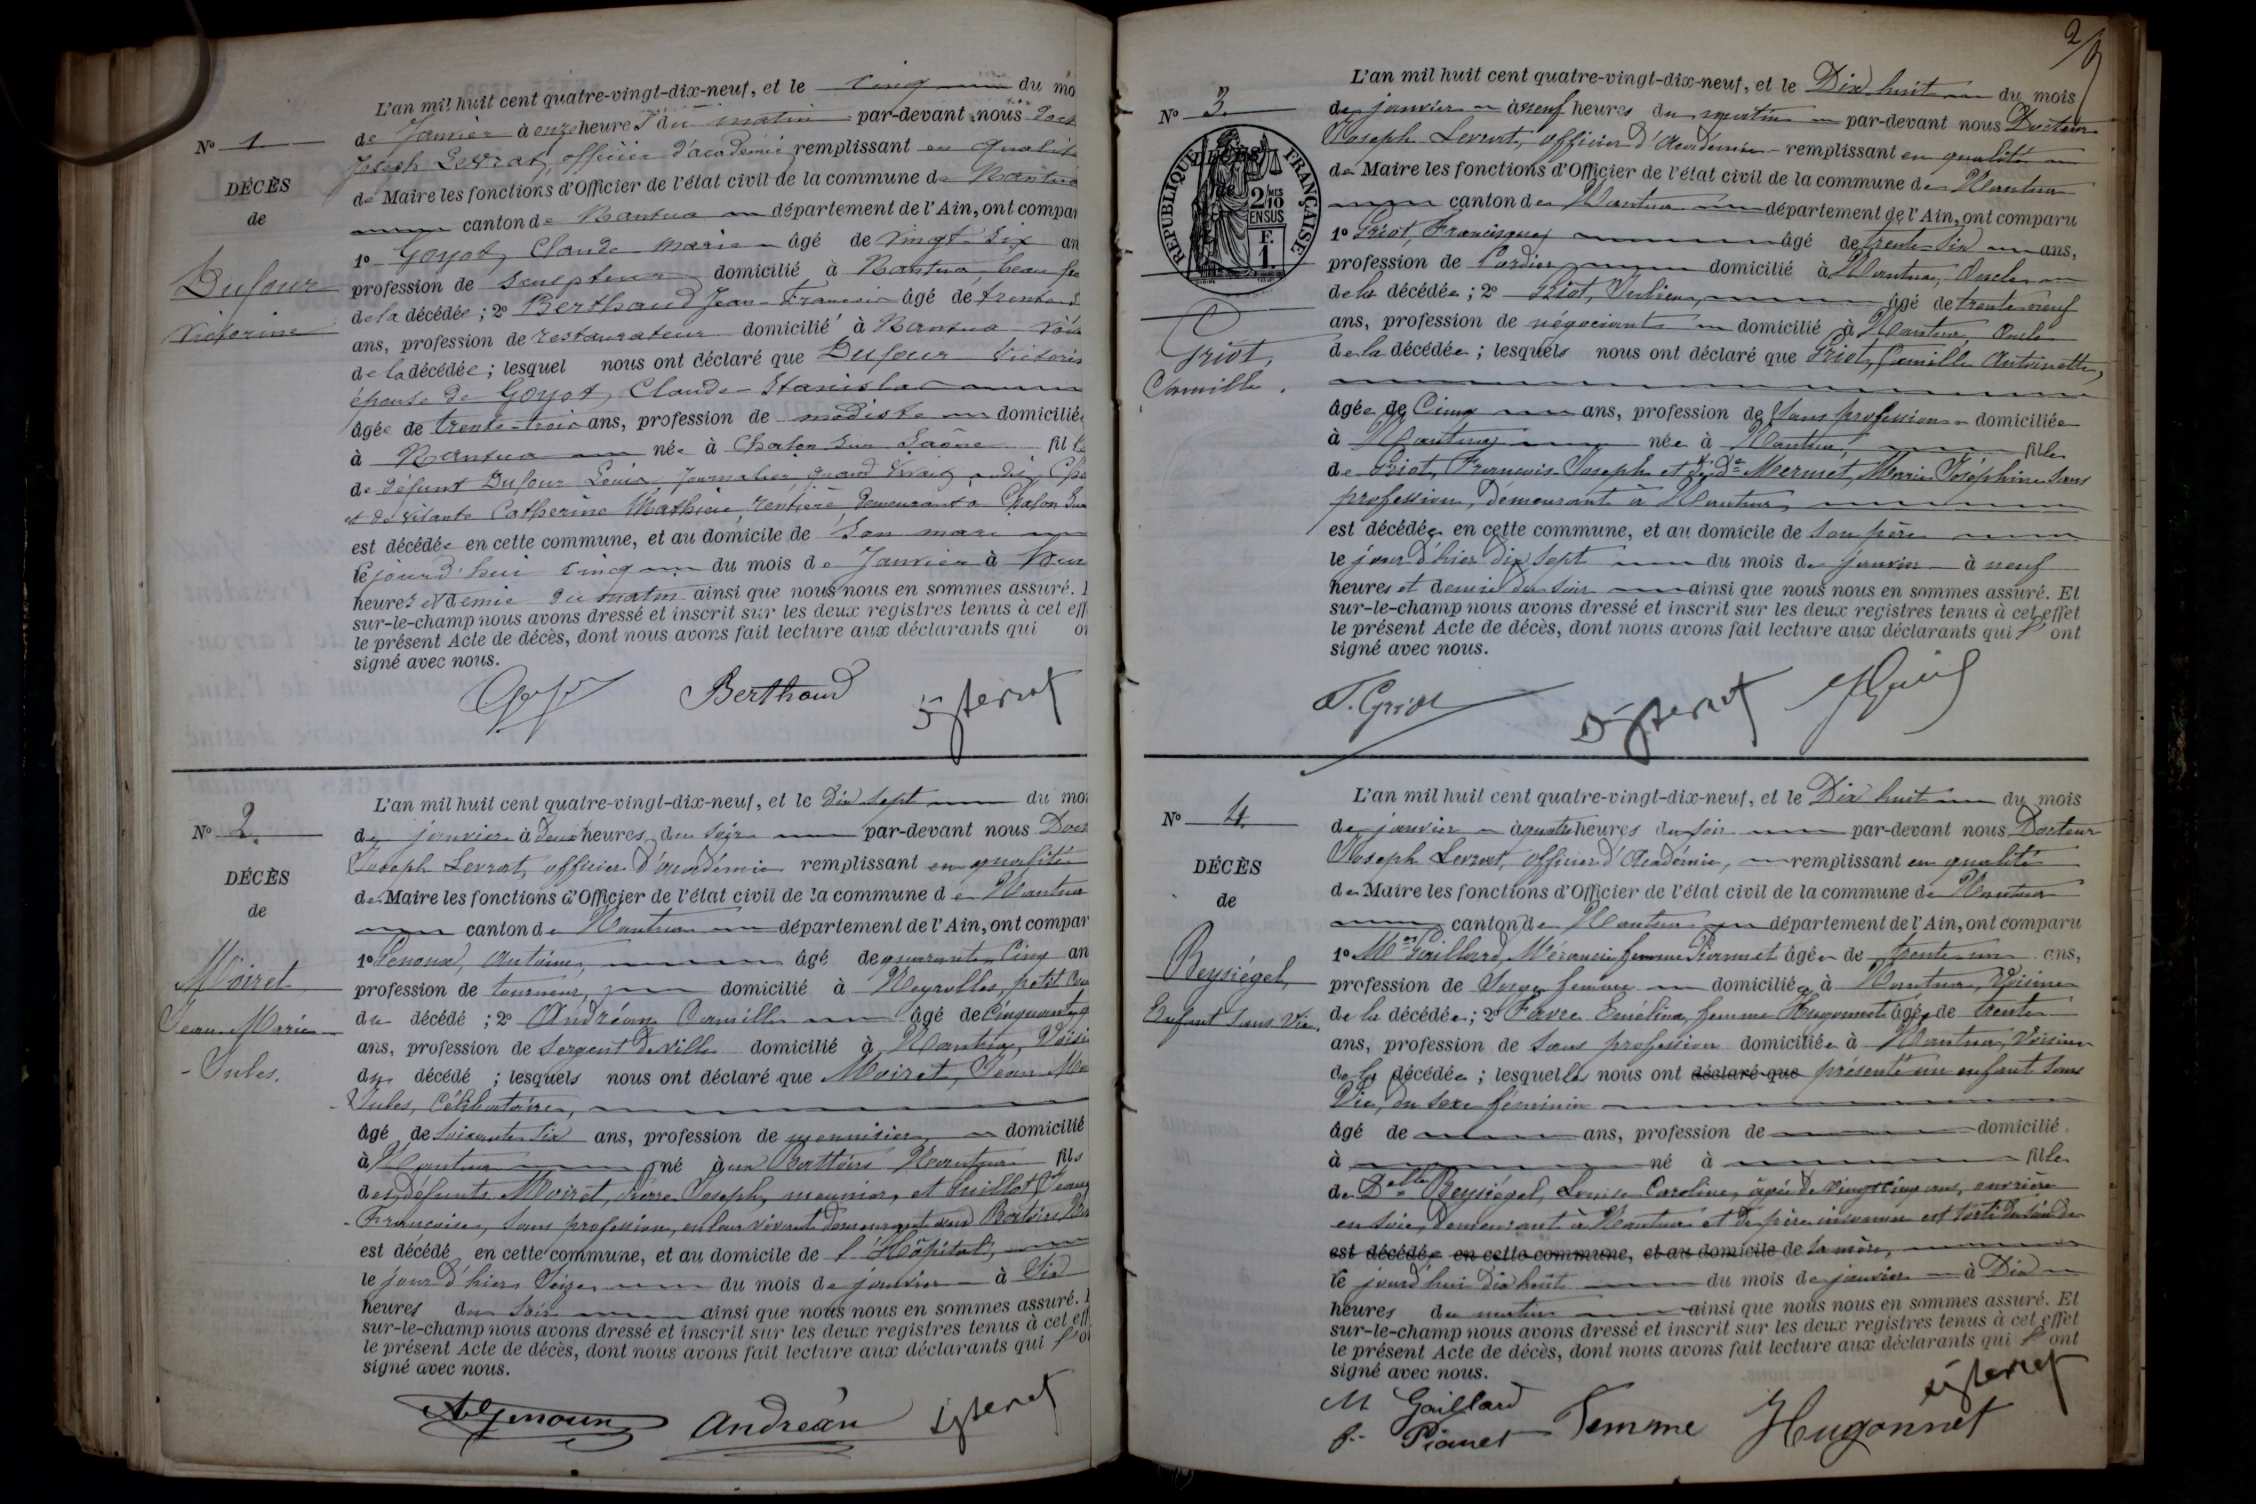 N° 1
DÉCÈS
de
Dufour
Victorine
L'an mil huit cent quatre-vingt-dix-neuf, et le cinq du mo
de Janvier à onze heures du matin par-devant nous Doct
Joseph Levrat, officier d'académie remplissant en qualité
de Maire les fonctions d'Officier de l'état civil de la commune de Nantua
canton de Nantua département de l'Ain, ont compar
1° Goyot, Claude Marie âgé de vingt-six an
profession de sculpteur domicilié à Nantua, beau fr
de la décédée ; 2° Berthaud Jean-Francois âgé de trente
ans, profession de restaurateur domicilié à Nantua
de la décédée ; lesquel nous ont déclaré que Dufour Victorin
épouse de Goyot, Claude-Stanislas
âgée de trente-trois ans, profession de modiste domiciliée
à Nantua née à Chalon sur Saône fille
de défunt Dufour Louis, journalier, quand vivait
et de vivante Catherine Mathieu, rentière demeurant à Chalon sur
est décédée en cette commune, et au domicile de son mari
le jourd'hui cinq du mois de Janvier à
heures et demie du matin ainsi que nous nous en sommes assuré.
sur-le-champ nous avons dressé et inscrit sur les deux registres tenus à cet eff
le présent Acte de décès, dont nous avons fait lecture aux déclarants qui on
signé avec nous.
Berthaud
N° 2.
DÉCÈS
de
Moiret
Jean-Marie
-Jules.
L'an mil huit cent quatre-vingt-dix-neuf, et le Dix sept du moi
de janvier à deux heures du soir par-devant nous Doct
Joseph Levrat, officier d'académie remplissant en qualité
de Maire les fonctions d'Officier de l'état civil de la commune de Nantua
canton de Nantua département de l'Ain, ont compar
1° Genoux, Antoine, âgé de quarante cinq an
profession de tourneur, domicilié à Neyrolles, petit
du décédé ; 2° Andréan Camille âgé de Cinquante
ans, profession de Sergent de ville domicilié à Nantua, Voisi
du décédé ; lesquels nous ont déclaré que Moiret, Jean Ma
Jules, Célibataire,
âgé de soixante six ans, profession de menuisier domicilié
à Nantua né aux Battoirs Nantua fils
des défunts Moiret, Pierre Joseph, meunier, et Guillot, Jeanne
Françoise, sans profession, en leur vivant demeurant aux Battoirs
est décédé en cette commune, et au domicile de l'Hôpital,
le jour d'hier Seize du mois de janvier à Six
heures du soir ainsi que nous nous en sommes assuré.
sur-le-champ nous avons dressé et inscrit sur les deux registres tenus à cet eff
le présent Acte de décès, dont nous avons fait lecture aux déclarants qui l'on
signé avec nous.
Andréan
2
N° 3.
RÉPUBLIQUE FRANÇAISE
2 MES
10
EN SUS
F.
1.
Griot,
Camille.
L'an mil huit cent quatre-vingt-dix-neuf, et le Dix huit du mois
de janvier à neuf heures du matin par-devant nous Docteur
Joseph Levrat, officier d'Académie - remplissant en qualité
de Maire les fonctions d'Officier de l'état civil de la commune de Nantua
canton de Nantua département de l'Ain, ont comparu
1° Griot, Francisque, âgé de trente six ans,
profession de Cordier domicilié à Nantua, Oncle
de la décédée ; 2° Griot, Julien, âgé de trente neuf
ans, profession de négociant domicilié à Nantua, Oncle
de la décédée ; lesquels nous ont déclaré que Griot, Camille Antoinette,
âgée de Cinq ans, profession de Sans profession domiciliée
à Nantua née à Nantua, fille
de Griot, François-Joseph et de De Mermet, Marie Joséphine sans
profession, demeurant à Nantua,
est décédée en cette commune, et au domicile de son père
le jour d'hier dix sept du mois de janvier à neuf
heures et demie du soir ainsi que nous nous en sommes assuré. Et
sur-le-champ nous avons dressé et inscrit sur les deux registres tenus à cet effet
le présent Acte de décès, dont nous avons fait lecture aux déclarants qui l'ont
signé avec nous.
Griot
N° 4.
DÉCÈS
de
Beysiégel,
Enfant sans Vie.
L'an mil huit cent quatre-vingt-dix-neuf, et le Dix huit du mois
de janvier à quatre heures du soir par-devant nous Docteur
Joseph Levrat, officier d'Académie, remplissant en qualité
de Maire les fonctions d'Officier de l'état civil de la commune de Nantua
canton de Nantua département de l'Ain, ont comparu
1° Gaillard, femme Pianet âgée de trente un ans,
profession de Sage femme domiciliée à Nantua, Voisine
de la décédée ; 2° Favre Emélina, femme Hugonnet âgée de trente
ans, profession de Sans profession domiciliée à Nantua, Voisine
de la décédée ; lesquelles nous ont déclaré que présenté un enfant sans
Vie, du sexe féminin
âgé de ans, profession de domicilié
à né à fille
de Delle Beysiégel, Louise Caroline, âgée de vingt cinq ans, ouvrière
en soie, demeurant à Nantua et de père inconnu est sorti du sein de
est décédée en cette commune, et au domicile de sa mère,
le jourd'hui dix huit du mois de janvier à Dix
heures du matin ainsi que nous nous en sommes assuré. Et
sur-le-champ nous avons dressé et inscrit sur les deux registres tenus à cet effet
le présent Acte de décès, dont nous avons fait lecture aux déclarants qui l'ont
signé avec nous.
M Gaillard
f. Pianet Femme Hugonnet